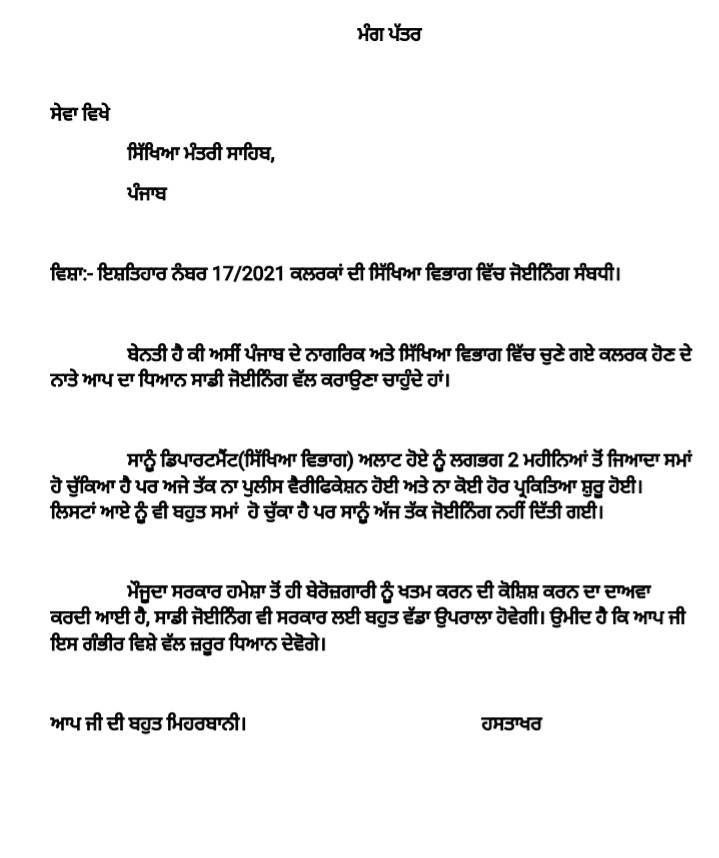 ਮੰਗ ਪੱਤਰ
ਸੇਵਾ ਵਿਖੇ
ਸਿੱਖਿਆ ਮੰਤਰੀ ਸਾਹਿਬ,
ਪੰਜਾਬ
ਵਿਸ਼ਾ:- ਇਸ਼ਤਿਹਾਰ ਨੰਬਰ 17/2021 ਕਲਰਕਾਂ ਦੀ ਸਿੱਖਿਆ ਵਿਭਾਗ ਵਿੱਚ ਜੋਈਨਿੰਗ ਸੰਬਧੀ।
ਬੇਨਤੀ ਹੈ ਕੀ ਅਸੀਂ ਪੰਜਾਬ ਦੇ ਨਾਗਰਿਕ ਅਤੇ ਸਿੱਖਿਆ ਵਿਭਾਗ ਵਿੱਚ ਚੁਣੇ ਗਏ ਕਲਰਕ ਹੋਣ ਦੇ
ਨਾਤੇ ਆਪ ਦਾ ਧਿਆਨ ਸਾਡੀ ਜੋਈਨਿੰਗ ਵੱਲ ਕਰਾਉਣਾ ਚਾਹੁੰਦੇ ਹਾਂ।
ਸਾਨੂੰ ਡਿਪਾਰਟਮੈਂਟ(ਸਿੱਖਿਆ ਵਿਭਾਗ) ਅਲਾਟ ਹੋਏ ਨੂੰ ਲਗਭਗ 2 ਮਹੀਨਿਆਂ ਤੋਂ ਜਿਆਦਾ ਸਮਾਂ
ਹੋ ਚੁੱਕਿਆ ਹੈ ਪਰ ਅਜੇ ਤੱਕ ਨਾ ਪੁਲੀਸ ਵੈਰੀਫਿਕੇਸ਼ਨ ਹੋਈ ਅਤੇ ਨਾ ਕੋਈ ਹੋਰ ਪ੍ਰਕਿਤਿਆ ਸ਼ੁਰੂ ਹੋਈ।
ਲਿਸਟਾਂ ਆਏ ਨੂੰ ਵੀ ਬਹੁਤ ਸਮਾਂ ਹੋ ਚੁੱਕਾ ਹੈ ਪਰ ਸਾਨੂੰ ਅੱਜ ਤੱਕ ਜੋਈਨਿੰਗ ਨਹੀਂ ਦਿੱਤੀ ਗਈ।
ਮੌਜੂਦਾ ਸਰਕਾਰ ਹਮੇਸ਼ਾ ਤੋਂ ਹੀ ਬੇਰੋਜ਼ਗਾਰੀ ਨੂੰ ਖਤਮ ਕਰਨ ਦੀ ਕੋਸ਼ਿਸ਼ ਕਰਨ ਦਾ ਦਾਅਵਾ
ਕਰਦੀ ਆਈ ਹੈ, ਸਾਡੀ ਜੋਈਨਿੰਗ ਵੀ ਸਰਕਾਰ ਲਈ ਬਹੁਤ ਵੱਡਾ ਉਪਰਾਲਾ ਹੋਵੇਗੀ। ਉਮੀਦ ਹੈ ਕਿ ਆਪ ਜੀ
ਇਸ ਗੰਭੀਰ ਵਿਸ਼ੇ ਵੱਲ ਜ਼ਰੂਰ ਧਿਆਨ ਦੇਵੋਗੇ।
ਆਪ ਜੀ ਦੀ ਬਹੁਤ ਮਿਹਰਬਾਨੀ। ਹਸਤਾਖਰ